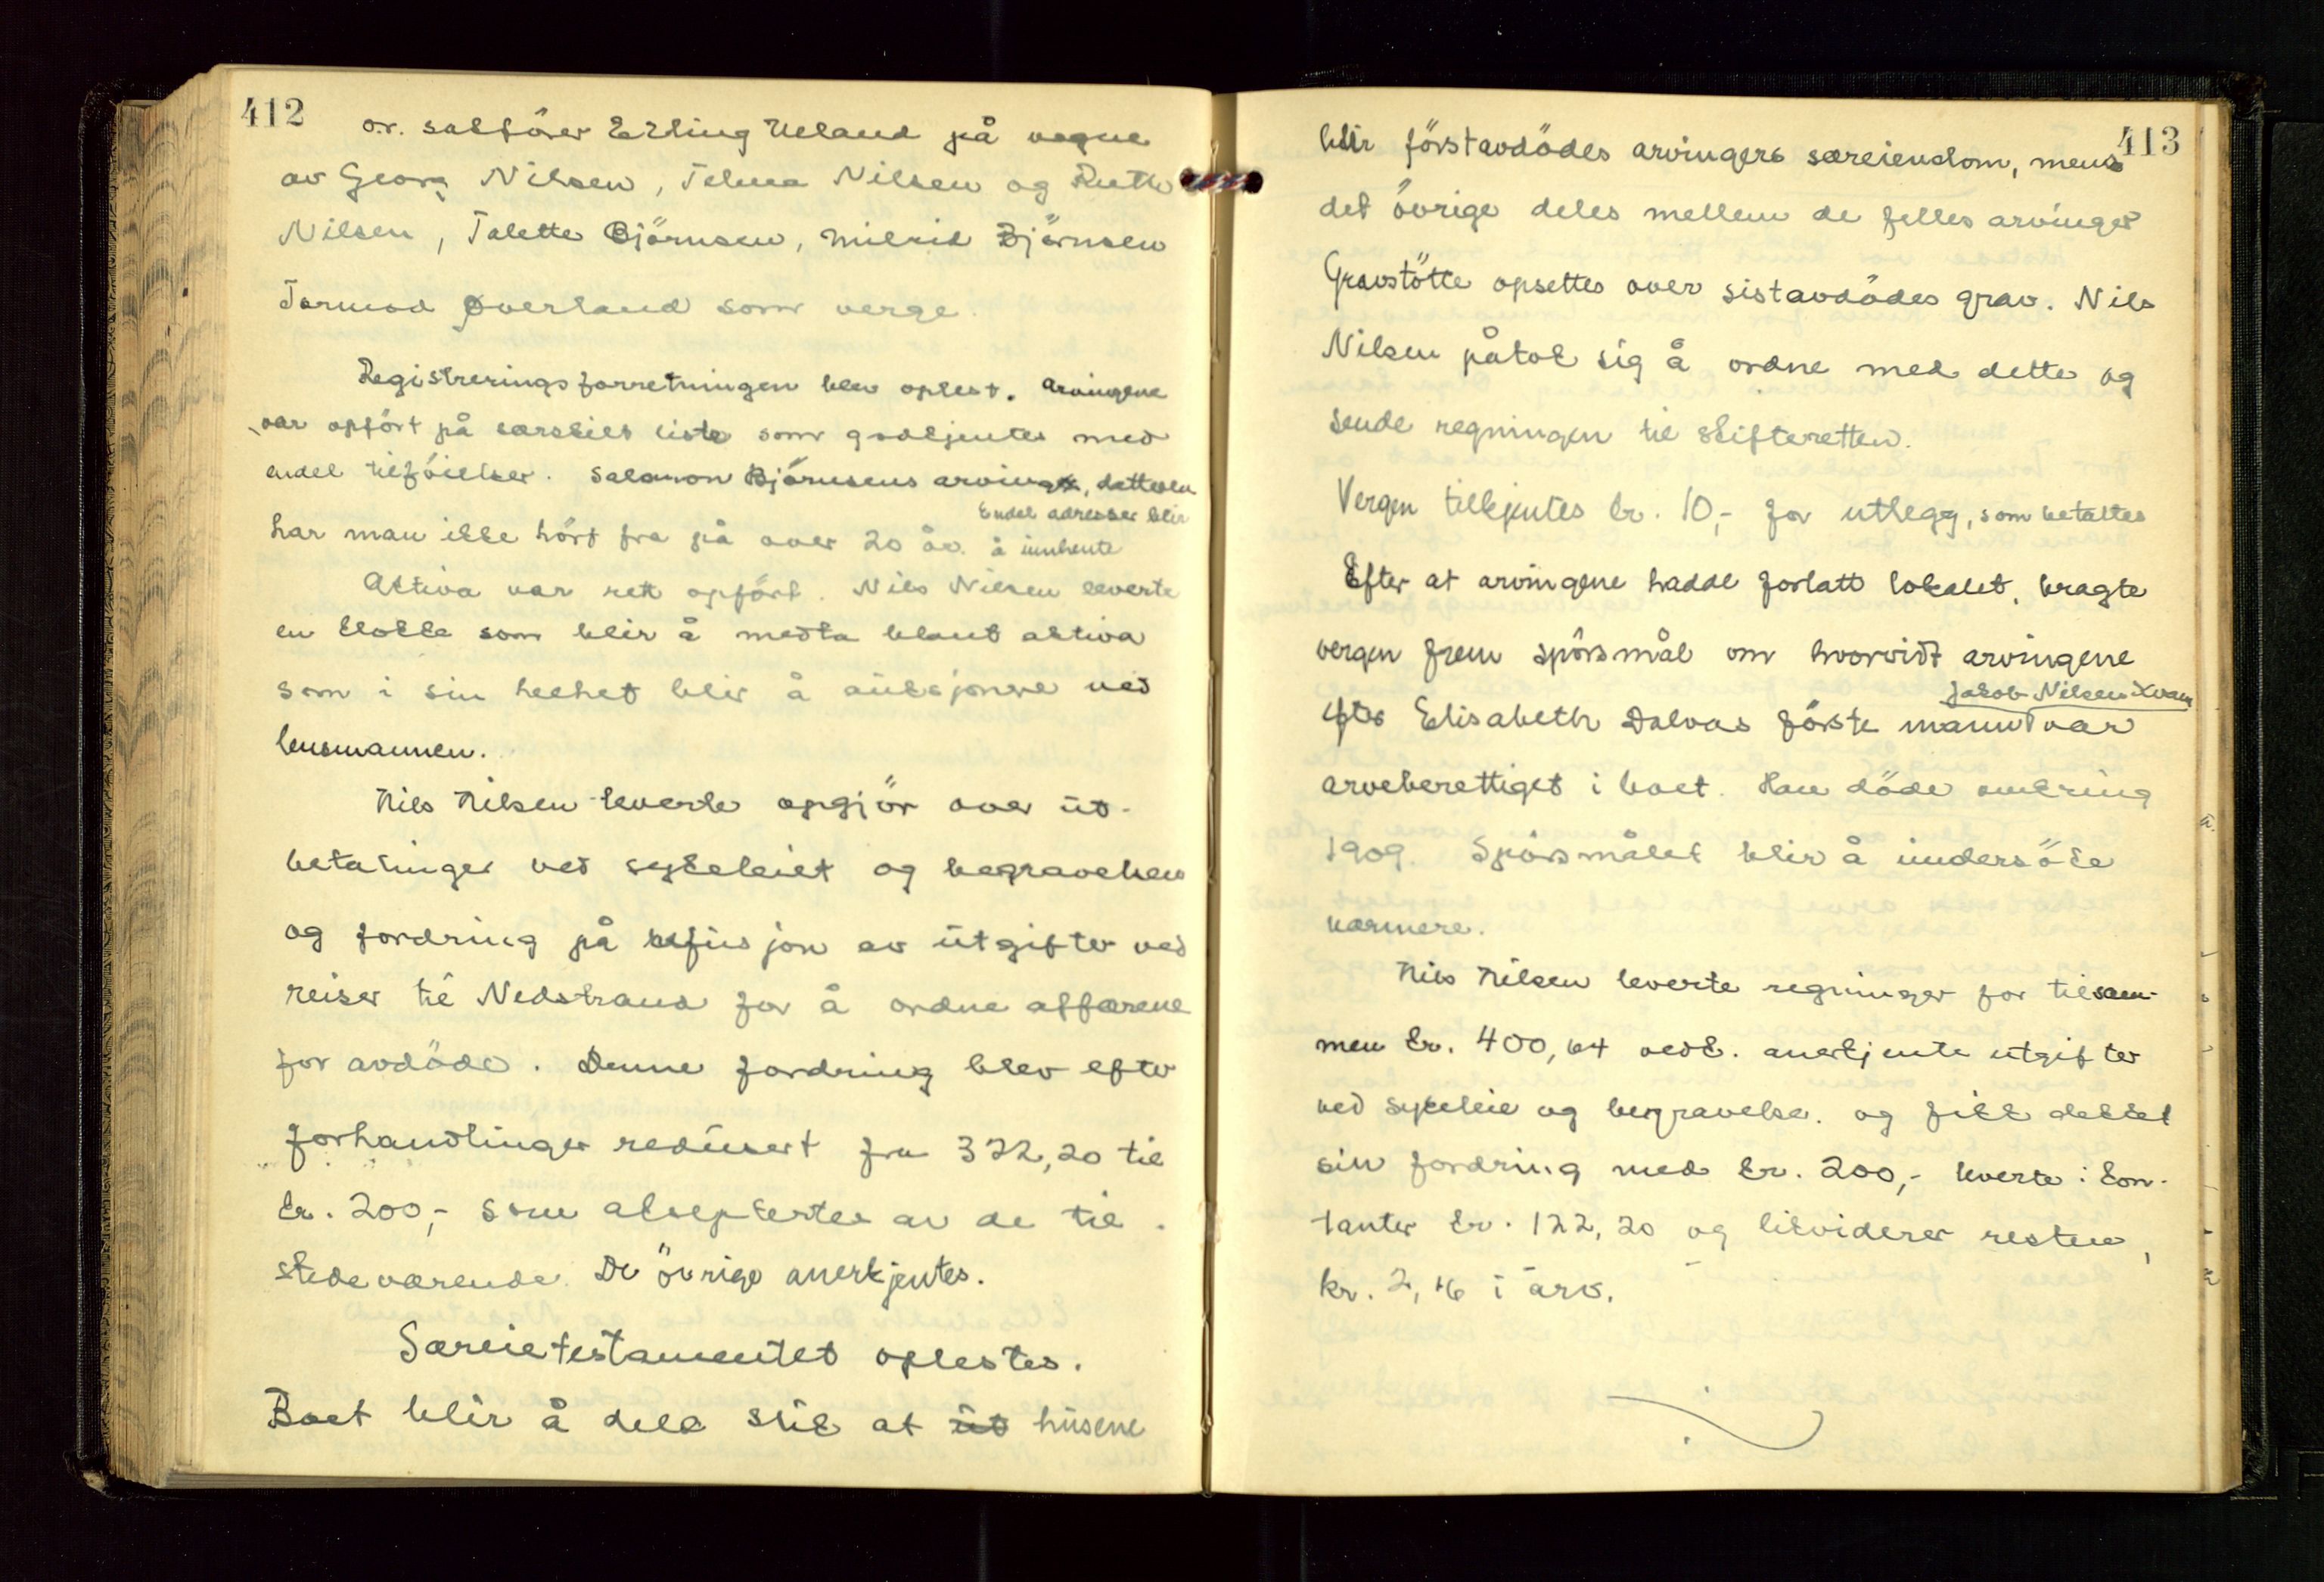 412
o.r. sakförer Erling Ueland på vegne
av Georg Nilsen, Telma Nilsen og Ruth
Nilsen, Talette Björnsen, Milrid Björnsen
Tormod Øverland som verge.
Registreringsforretningen blev oplest. Arvingene
var opfört på særskilt liste som godkjentes med
endel tilföielser. Salomon Björnsens arving, datteren
Endel adresser blir
har man ikke hört fra på over 20 år. å innhente
Aktiva var rett opfört. Nils Nilsen leverte
en klokke som blir å medta blant aktiva
som i sin helhet blir å auksjonere ved
lensmannen.
Nils Nilsen leverte opgjör over ut-
betalinger ved sykeleiet og begravelsen
og fordring på refusjon av utgifter ved
reiser til Nedstrand for å ordne affærene
for avdöde. Denne fordring blev efter
forhandlinger redusert fra 322,20 til
kr. 200,- som aksepteres av de til-
stedeværende. De övrige anerkjentes.
Særeietestamentet oplestes.
Boet blir å dele slik at ut husene
413
blir förstavdödes arvingers særeiendom, mens
det övrige deles mellem de felles arvinger
Gravstötte opsettes over sistavdödes grav. Nils
Nilsen påtok sig å ordne med dette og
sende regningen til skifteretten.
Vergen tilkjentes kr. 10,- for utlegg, som betaltes
Efter at arvingene hadde forlatt lokalet, bragte
vergen frem spörsmål om hvorvidt arvingene
Jakob Nilsen Kvam
efter Elisabeth Dalvas förste mann var
arveberettiget i boet. Han döde omkring
1909. Spörsmålet blir å undersöke
nærmere.
Nils Nilsen leverte regninger for tilsam-
men kr. 400,64 vedk. anerkjente utgifter
ved sykeleie og begravelse. og fikk dekket
sin fordring med kr. 200,- leverte i kon-
tanter kr. 122,20 og likviderer resten,
kr. 2,16 i arv.